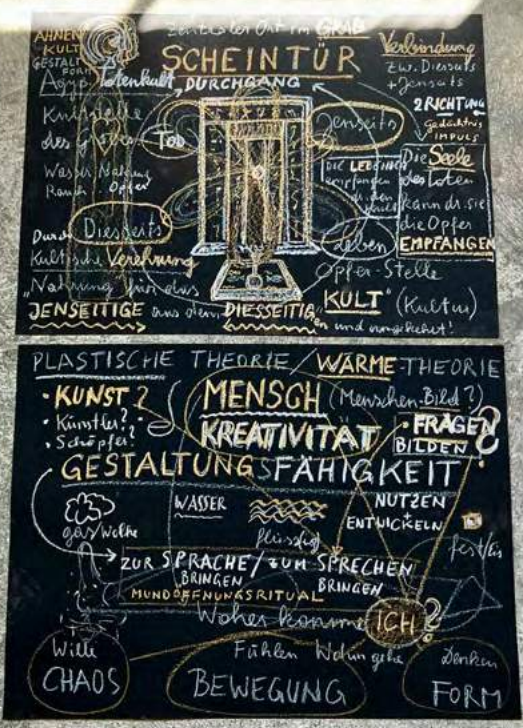 AHNEN
KULT
GESTALT
FORM
Zentraler Ort im GRAB
SCHEINTÜR
DURCHGANG
Verbindung
zw. Diesseits
+ Jenseits
2 RICHTUNG
Gedächtnis
IMPULS
Ägyp. Totenkult
Kultstelle
des Grabes
Tod
Jenseits
Wasser Nahrung
Rauch Opfer
DIE LEBENDEN
empfangen
Die Seele
des Toten
kann dr. sie
die Opfer
EMPFANGEN
Durch Diesseits
Leben
Kultische Verehrung
Opfer-Stelle
"Nahrung für das
KULT" (Kultur)
JENSEITIGE aus dem DIESSEITIGEN und umgekehrt!
PLASTISCHE THEORIE / WÄRME-THEORIE
• KUNST?
• Künstler?
• Schöpfer?
MENSCH (Menschen-Bild?)
KREATIVITÄT
• FRAGEN
BILDEN
?
GESTALTUNGSFÄHIGKEIT
gas/Wolke
WASSER
flüssig
NUTZEN
ENTWICKELN
fest/Eis
ZUR SPRACHE / ZUM SPRECHEN
BRINGEN BRINGEN
MUNDÖFFNUNGSRITUAL
Woher komme ICH?
Wille
CHAOS
Fühlen Wohin gehe
BEWEGUNG
Denken
FORM